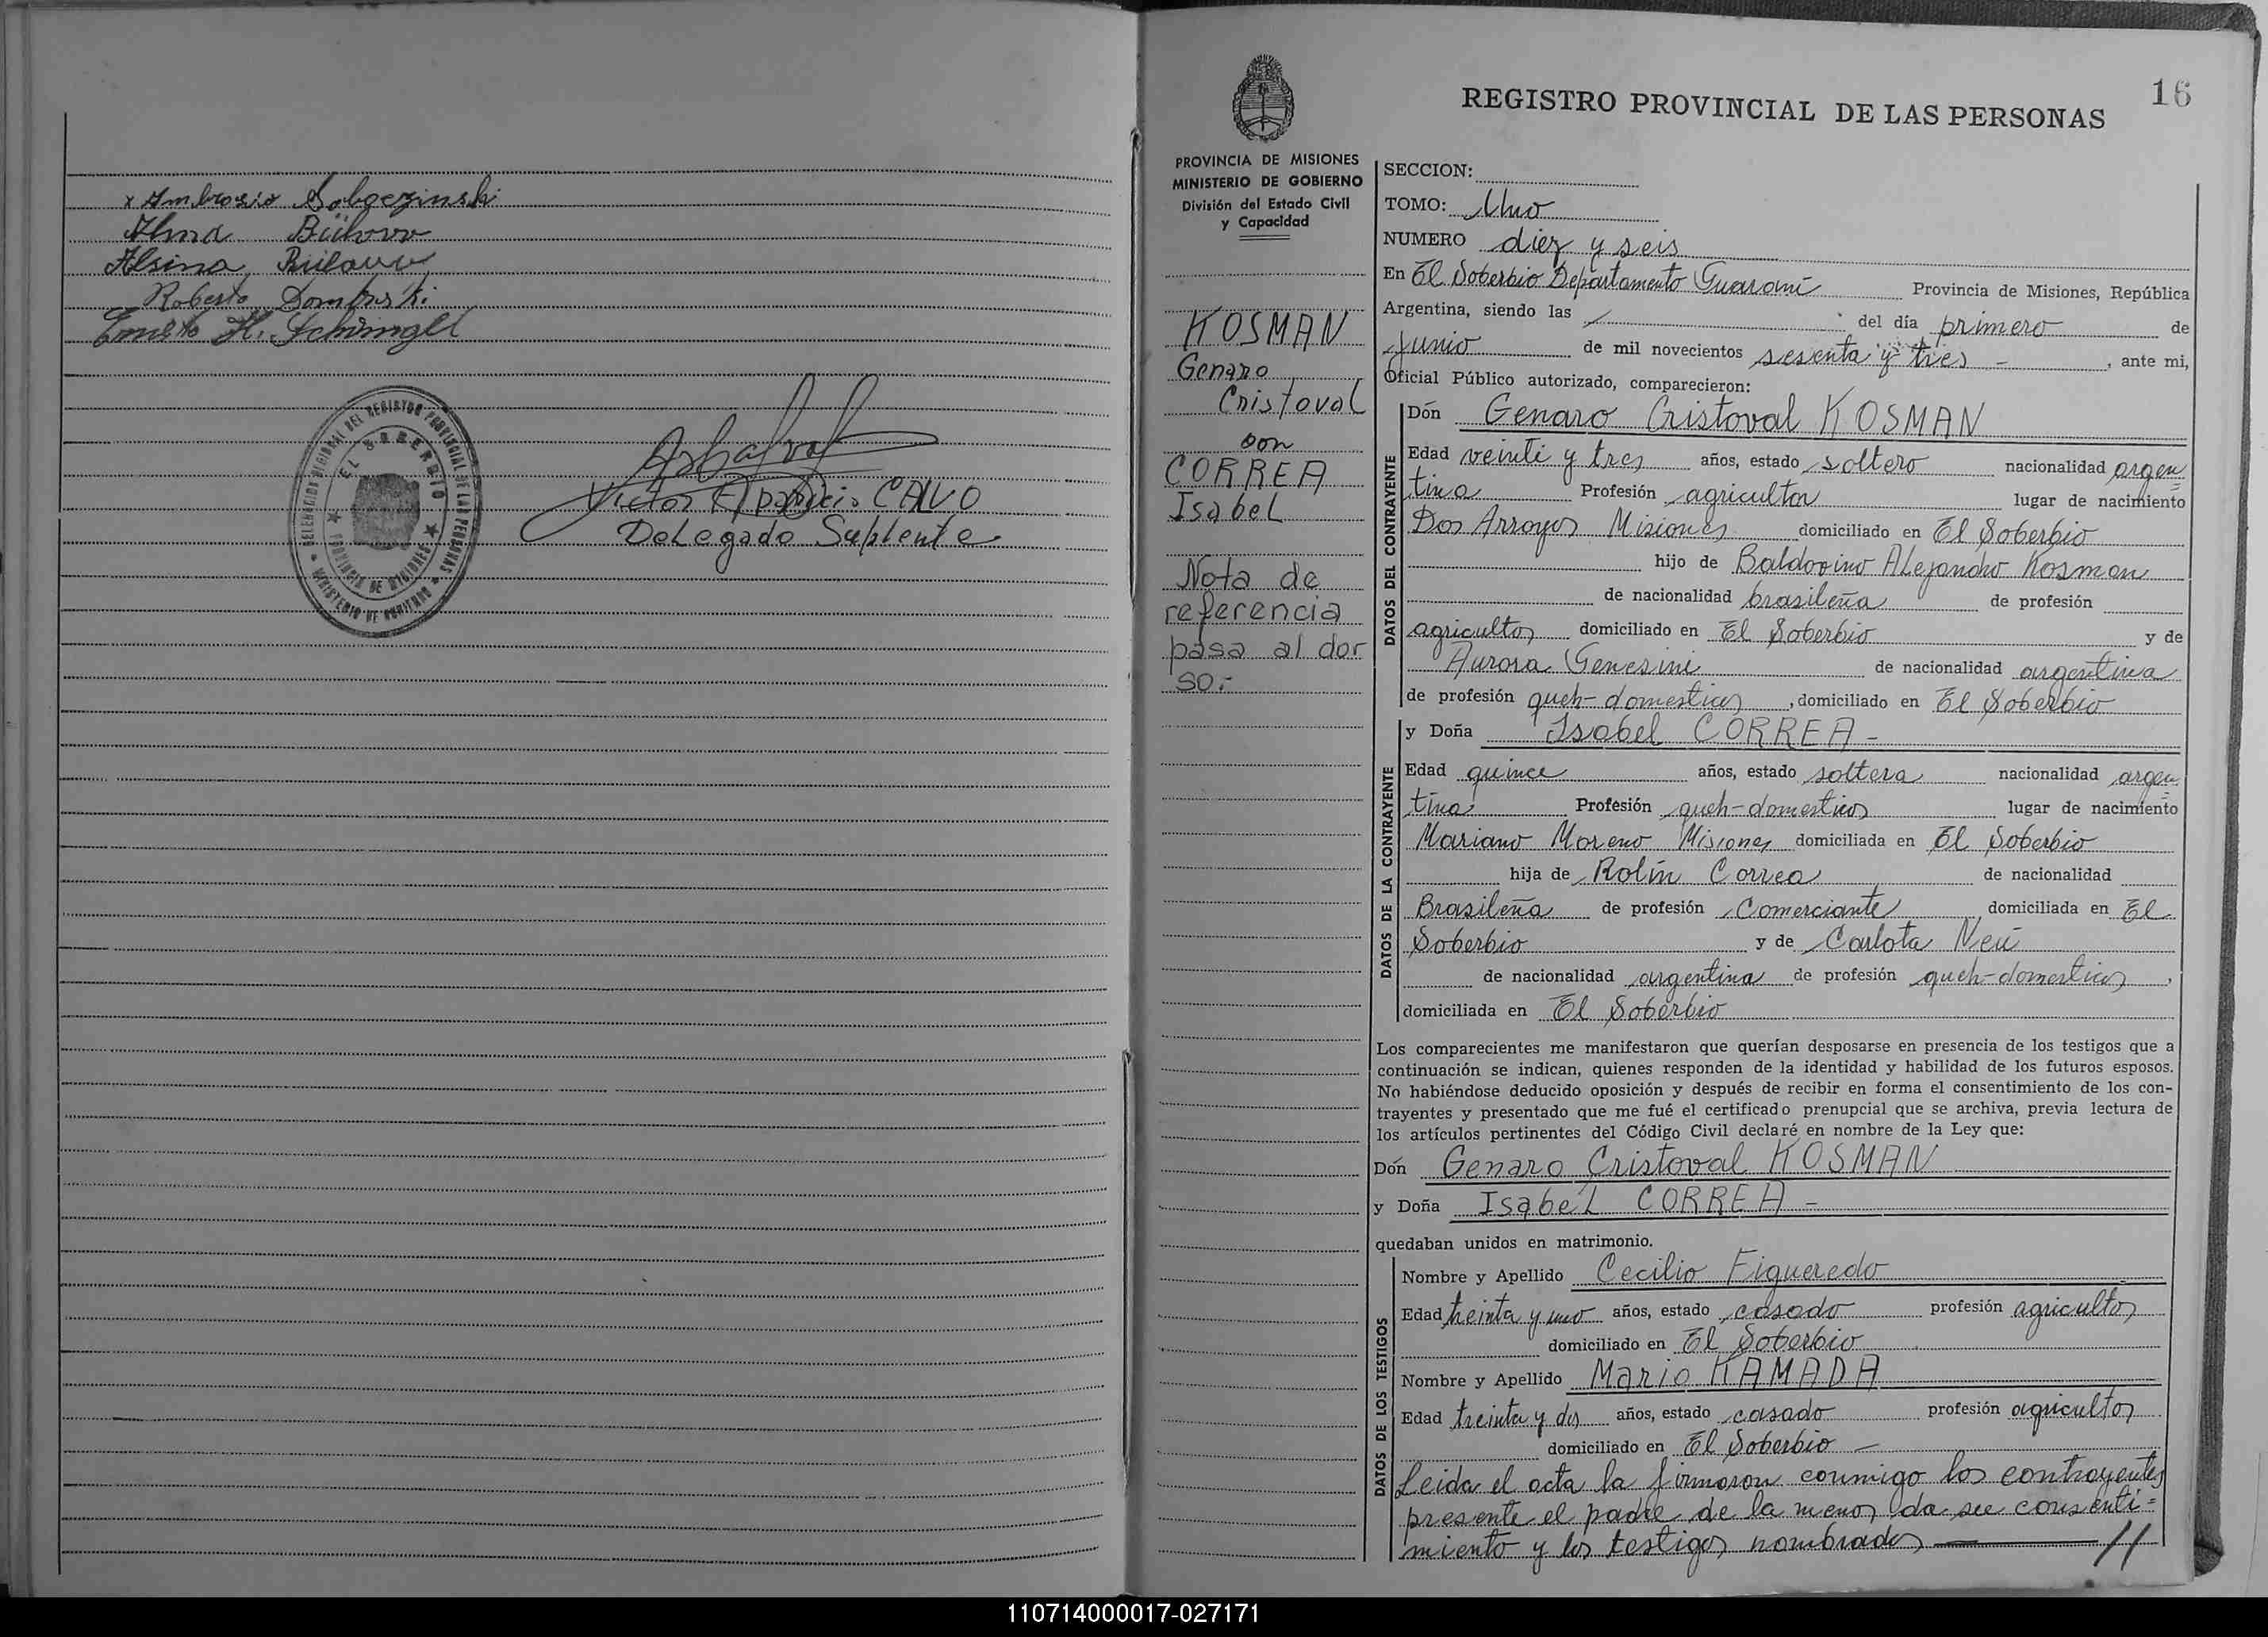 x Ambrosio Sobgezinski
Alma Bülow
Alsina Bülow
Roberto Dombrski
Ernesto H. Schwingel
DELEGACION REGIONAL DEL REGISTRO PROVINCIAL DE LAS PERSONAS
EL SOBERBIO
PROVINCIA DE MISIONES
MINISTERIO DE GOBIERNO
Victor Aparicio CALVO
Delegado Suplente
16
REGISTRO PROVINCIAL DE LAS PERSONAS
PROVINCIA DE MISIONES
MINISTERIO DE GOBIERNO
División del Estado Civil
y Capacidad
KOSMAN
Genaro
Cristoval
con
CORREA
Isabel
Nota de
referencia
pasa al dor
so.-
SECCION:
TOMO: Uno
NUMERO diez y seis
En El Soberbio Departamento Guaraní Provincia de Misiones, República
Argentina, siendo las del día primero de
Junio de mil novecientos sesenta y tres - , ante mi,
Oficial Público autorizado, comparecieron:
DATOS DEL CONTRAYENTE
Dón Genaro Cristoval KOSMAN
Edad veinti y tres años, estado soltero nacionalidad argen
tina Profesión agricultor lugar de nacimiento
Dos Arroyos Misiones domiciliado en El Soberbio
hijo de Baldovino Alejandro Kosman
de nacionalidad brasileña de profesión
agricultor domiciliado en El Soberbio y de
Aurora Genesini de nacionalidad argentina
de profesión queh-domesticos , domiciliado en El Soberbio
DATOS DE LA CONTRAYENTE
y Doña Isabel CORREA -
Edad quince años, estado soltera nacionalidad argen
tina Profesión queh-domesticos lugar de nacimiento
Mariano Moreno Misiones domiciliada en El Soberbio
hija de Rolín Correa de nacionalidad
Brasileña de profesión Comerciante domiciliada en El
Soberbio y de Carlota Neú
de nacionalidad argentina de profesión queh-domesticos ,
domiciliada en El Soberbio
Los comparecientes me manifestaron que querían desposarse en presencia de los testigos que a
continuación se indican, quienes responden de la identidad y habilidad de los futuros esposos.
No habiéndose deducido oposición y después de recibir en forma el consentimiento de los con-
trayentes y presentado que me fué el certificado prenupcial que se archiva, previa lectura de
los artículos pertinentes del Código Civil declaré en nombre de la Ley que:
Dón Genaro Cristoval KOSMAN
y Doña Isabel CORREA -
quedaban unidos en matrimonio.
DATOS DE LOS TESTIGOS
Nombre y Apellido Cecilio Figueredo
Edad treinta y uno años, estado casado profesión agricultor
domiciliado en El Soberbio
Nombre y Apellido Mario KAMADA
Edad treinta y dos años, estado casado profesión agricultor
domiciliado en El Soberbio -
Leida el acta la firmaron conmigo los contrayentes
presente el padre de la menor da su consenti=
miento y los testigos nombrados //
110714000017-027171